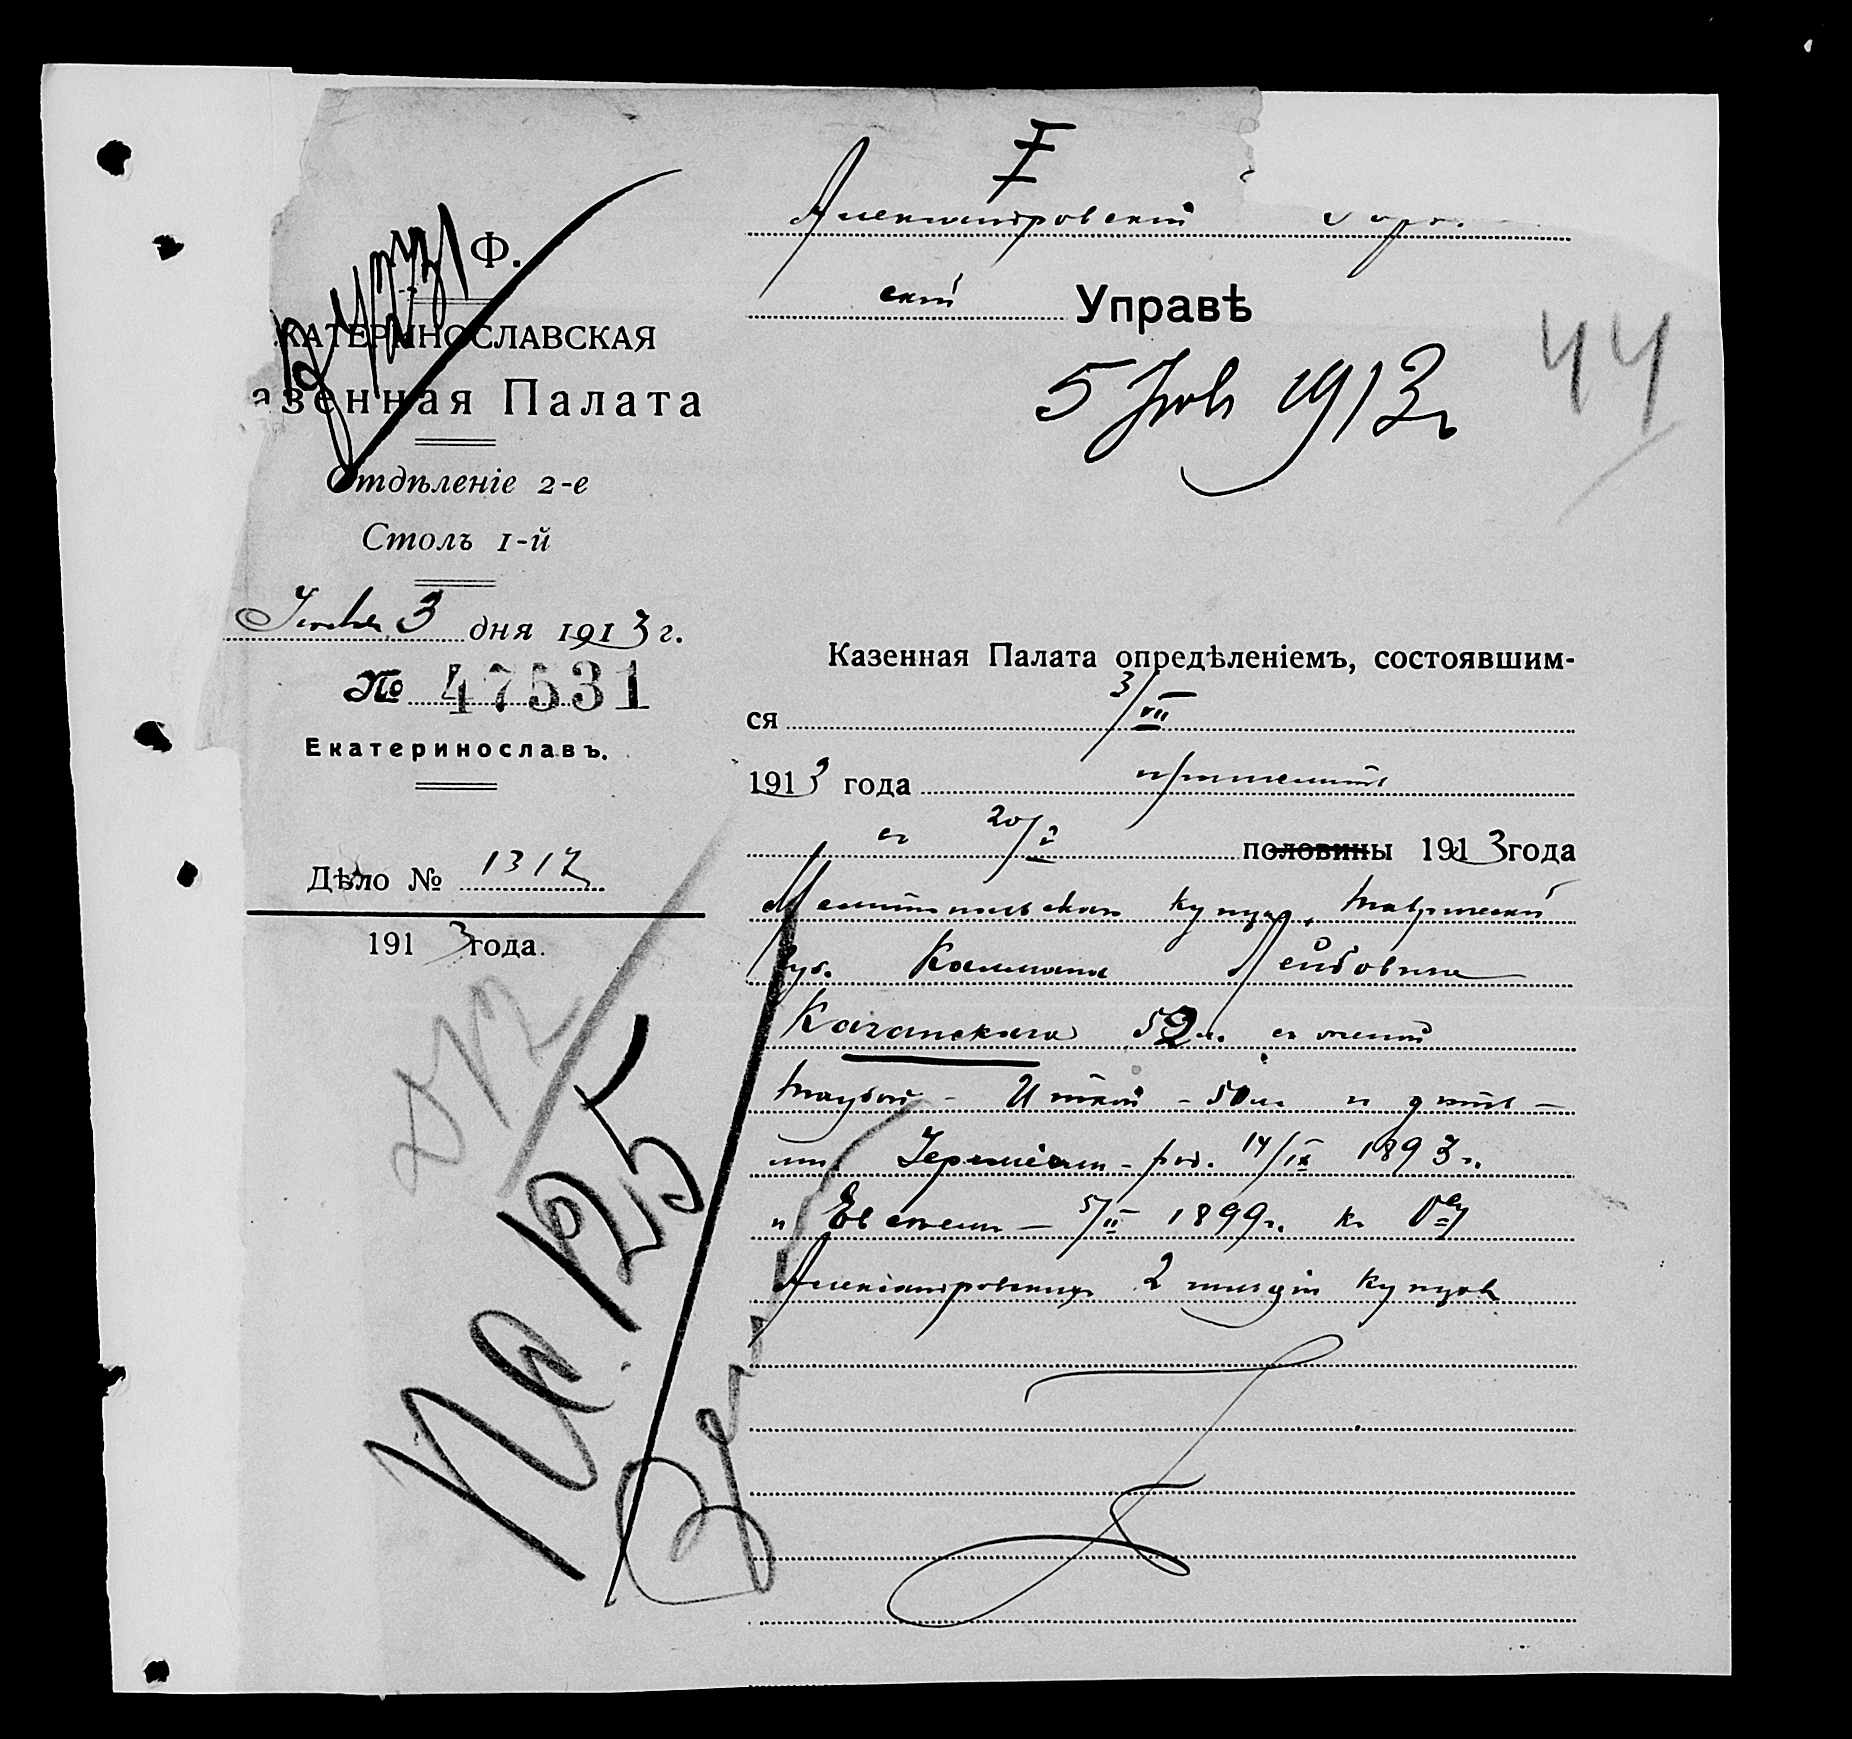 Ф.
КАТЕРИНОСЛАВСКАЯ
азенная Палата
Отдѣленіе 2-е
Столъ 1-й
Іюля 3 дня 1913 г.
№ 47531
Екатеринославъ.
Дѣло № 1317
1913 года.
№ 125
Александровской Гор.
ской Управѣ
5 Іюль 1913 г
44
Казенная Палата опредѣленіемъ, состоявшим-
ся 3/VII
1913 года причислить
съ 20/V половины 1913 года
Мелитопольскаго купца, Таврической
губ. Калмана Лейбовича
Каганскаго 52 л. съ женой
Таубой - Иткой - 50 л. и дѣть-
ми Іереміем - род. 14/IX 1893 г.
и Евгеніем - 5/II 1899 г. къ
Александровских 2 гильдіи купцов